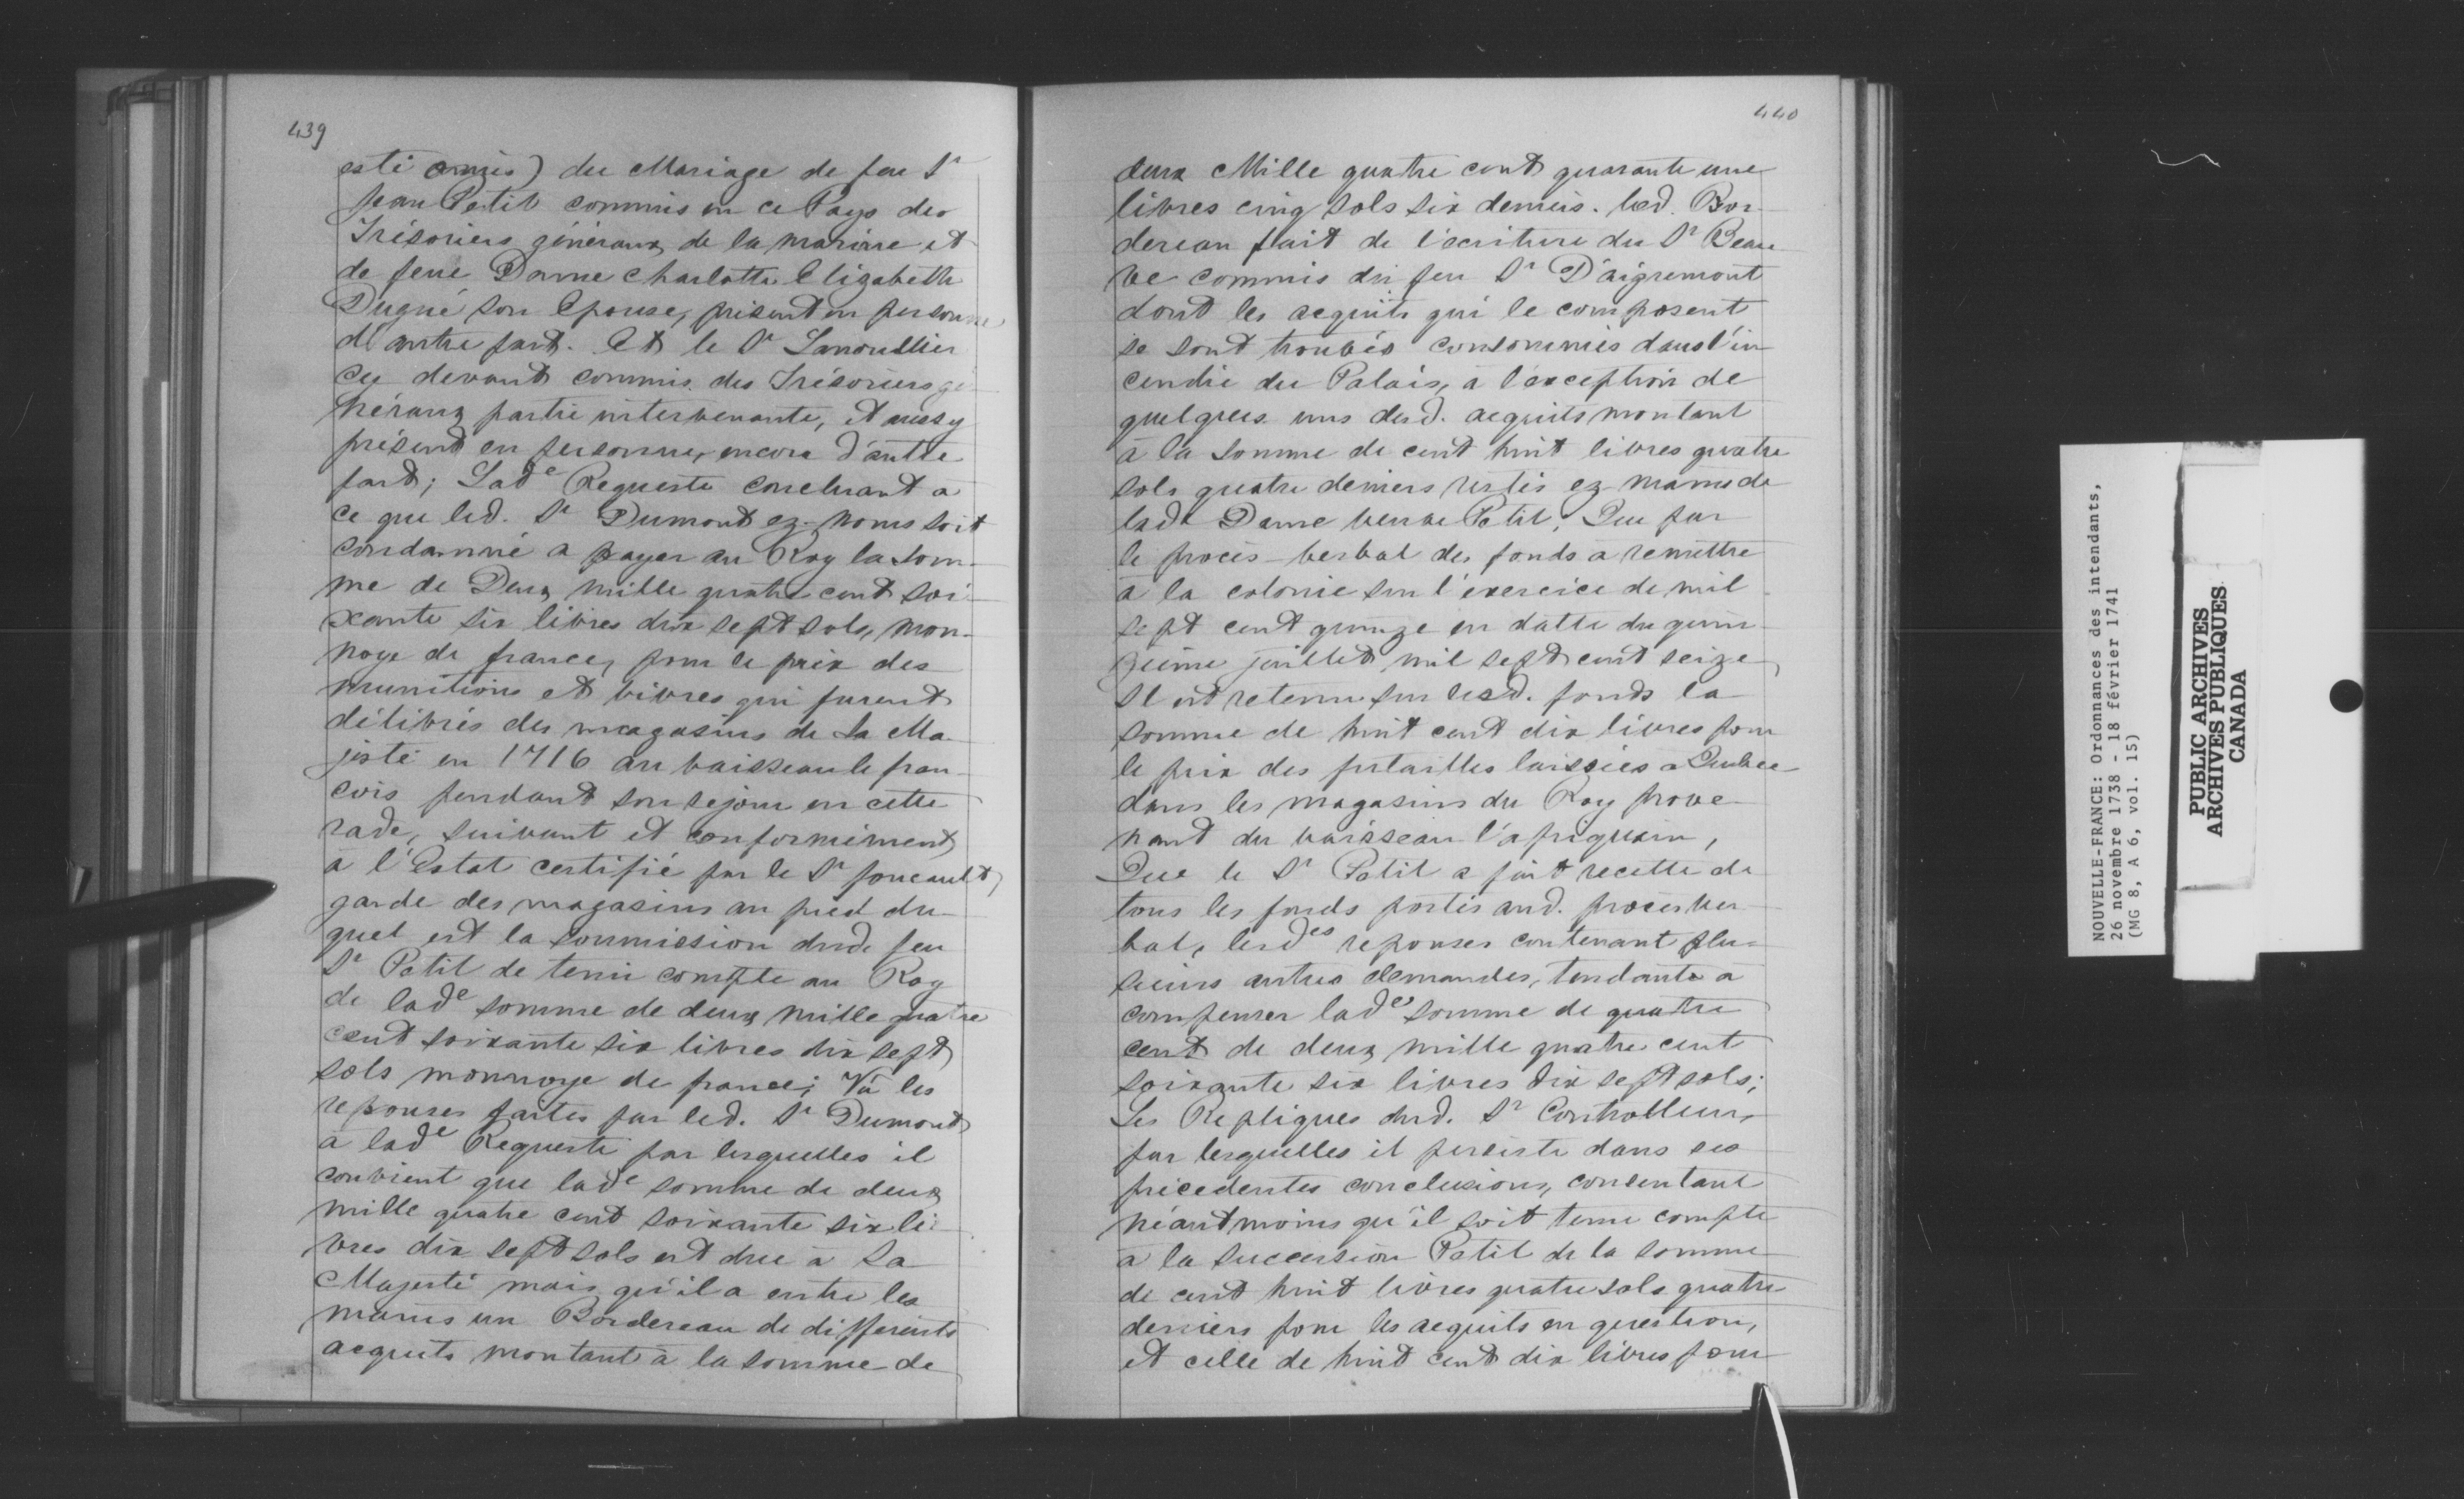 439
esté omis) du Mariage de feu Sr
Jean Petit commis en ce Pays des
Trésoriers généraux de la marine et
de feue Dame Charlotte Elizabeth
Dugué son Epouse, présent en personne
d'autre part. Et le Sr Lanoullier
cy devant commis des Trésoriers gé-
néraux partie intervenante, et aussy
présent en personne, encore d'autre
part; Lade Requeste concluant a
ce que led. Sr Dumont ez-noms soit
condamné a payer au Roy la som-
me de Deux mille quatre cent soi-
xante six livres dix sept sols, mon-
noye de france, pour le prix des
munitions et vivres qui furent
délivrés des magasins de Sa Ma-
jesté en 1716 au vaisseau le fran-
cois pendant son sejour en cette
rade, suivant et conformément
à l'Estat certifié par le Sr foucault,
garde des magasins au pied du-
quel est la soumission dud. feu
Sr Petit de tenir compte au Roy
de lade somme de deux mille quatre
cent soixante six livres dix sept
sols monnoye de france; Vû les
réponses faites par led. Sr Dumont
à lade Requeste par lesquelles il
convient que lade somme de deux
mille quatre cent soixante six li-
vres dix sept sols est due à Sa
Majesté mais qu'il a entre les
mains un Bordereau de differents
acquits montant à la somme de
440
deux Mille quatre cent quarante une
livres cinq sols six deniers. led. Bor-
dereau fait de l'écriture du Sr Beau
ve commis du feu Sr D'aigremont
dont les acquits qui le composent
se sont trouvés consommés dans l'in
cendie du Palais, à l'exception de
quelques uns desd. acquits montant
à la somme de cent huit livres quatre
sols quatre deniers restés ez mains de
lade Dame veuve Petit, Que par
le procès-verbal des fonds à remettre
à la colonie sur l'exercice de mil
sept cent quinze en datte du quin-
zième juillet mil sept cent seize,
Il est retenu sur lesd. fonds la
somme de huit cent dix livres pour
le prix des futailles laissées a Quebec
dans les magasins du Roy prove-
nant du vaisseau l'afriquain,
Que le Sr Petit a fait recette de
tous les fonds portés aud. procès ver
bal, lesdes reponses contenant plu-
sieurs autres demandes, tendante a
compenser lade somme de quatre
cent de deux mille quatre cent
soixante six livres dix sept sols;
Les Repliques dud. Sr Controlleur,
par lesquelles il persiste dans ses
précedentes conclusions, consentant
néantmoins qu'il soit tenu compte
à la succession Petit de la somme
de cent huit livres quatre sols quatre
deniers pour les acquits en question,
et celle de huit cent dix livres pour
NOUVELLE-FRANCE: Ordonnances des intendants,
26 novembre 1738 - 18 février 1741
(MG 8, A 6, vol. 15)
PUBLIC ARCHIVES
ARCHIVES PUBLIQUES
CANADA